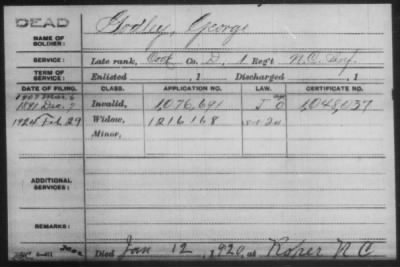 DEAD
Godley, George
NAME OF SOLDIER:
SERVICE: Late rank, Cook Co. D, 1 Reg't N.C. Inf.
TERM OF SERVICE: Enlisted , 1 Discharged , 1
DATE OF FILING. CLASS. APPLICATION NO. LAW. CERTIFICATE NO.
1891 Dec. 7 Invalid, 1,076,691 1,048,037
1924 Feb 29 Widow, 1216168
Minor,
ADDITIONAL SERVICES:
REMARKS:
Died Jan 12, 1920, at Roper N C